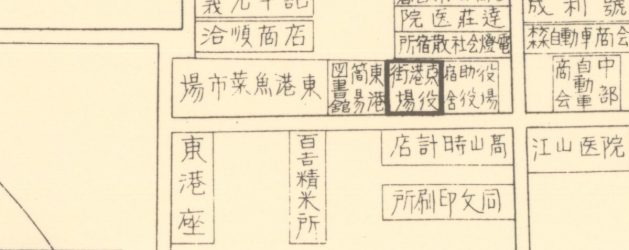 洽順商店
達莊医院
電燈会社散宿所
成利號
自動車商会
東港魚菜市場
東港
簡易
図書館
東港街
役場
役場
助役
宿舍
中部
自動車
商会
東港座
百吉精米所
高山時計店
同文印刷所
江山医院